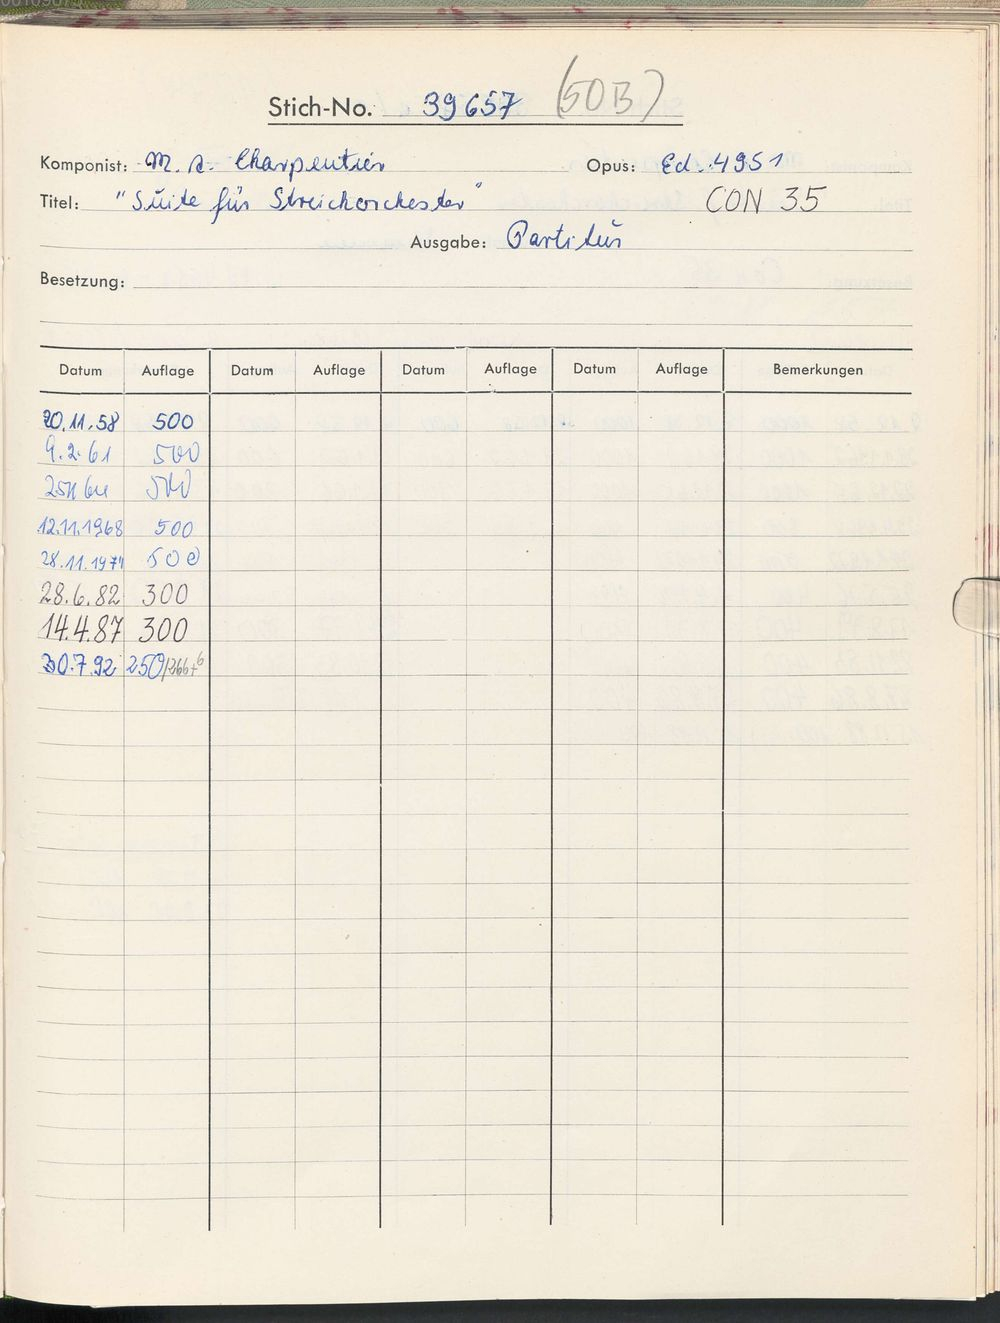 Stich-No. 39657 (50B)
Komponist: M. A. Charpentier Opus: Ed. 4951
Titel: "Suite für Streichorchester" CON 35
Ausgabe: Partitur
Besetzung:
Datum Auflage Datum Auflage Datum Auflage Datum Auflage Bemerkungen
20.11.58 500
9.2.61 500
25.11.64 500
12.11.1968 500
28.11.1974 500
28.6.82 300
14.4.87 300
30.7.92 250/266+6